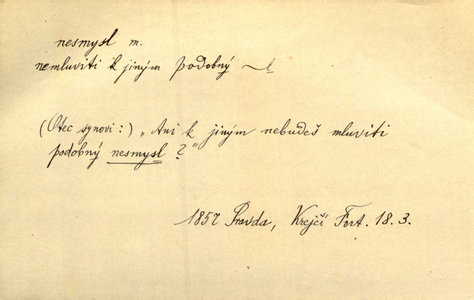 nesmysl m.
nemluviti k jiným podobný ~
(Otec synovi:) „Ani k jiným nebudeš mluviti
podobný nesmysl?"
1857 Pravda, Krejčí Fert. 18.3.